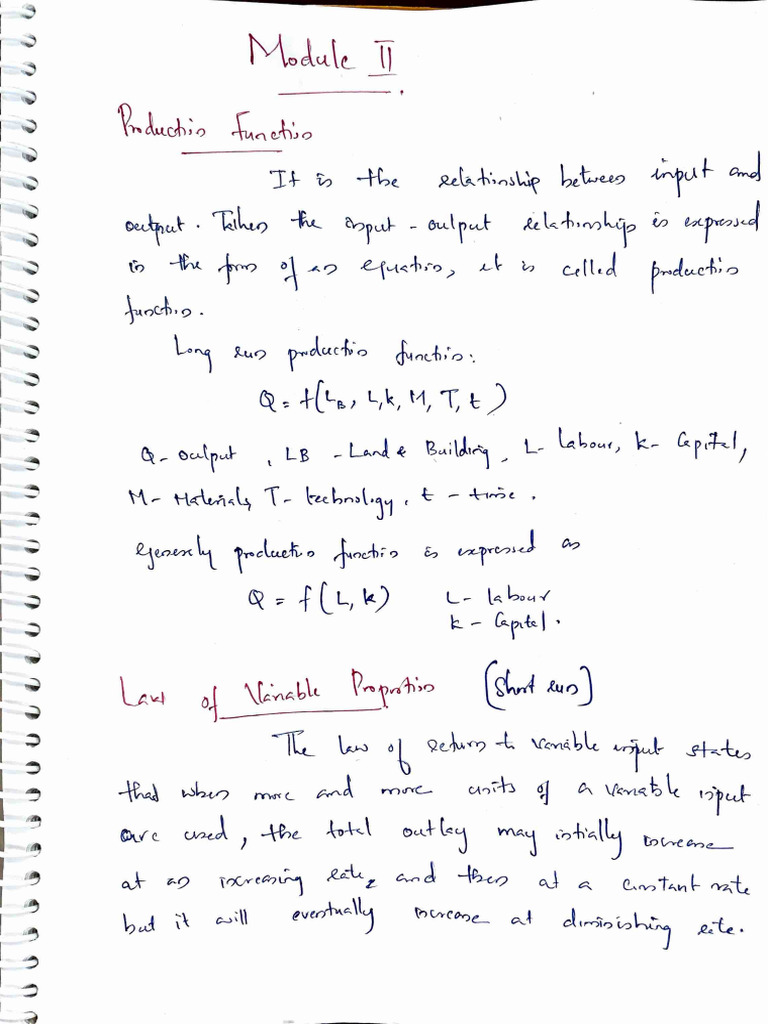 Module II
Production Function
It is the relationship between input and
output. When the input-output relationship is expressed
in the form of an equation, it is called production
function.
Long run production function:
Q = f(LB, L, k, M, T, t)
Q - output, LB - Land & Building, L - labour, k - Capital,
M - Materials, T - technology, t - time.
Generally production function is expressed as
Q = f(L, k) L - labour
k - Capital.
Law of Variable Proportion (Short run)
The law of return to variable input states
that when more and more units of a variable input
are used, the total outlay may initially increase
at an increasing rate, and then at a constant rate
but it will eventually increase at diminishing rate.